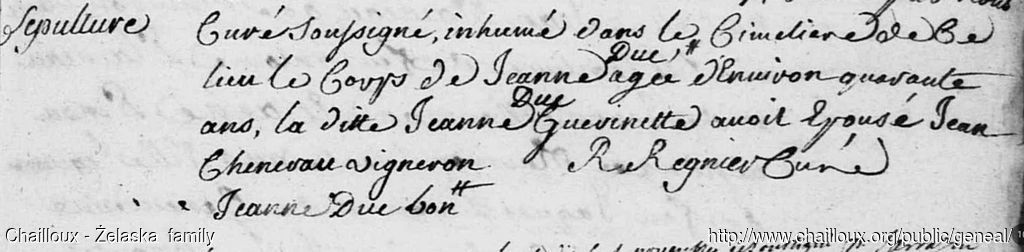 Sepulture
Curé Soussigné, inhumé dans le Cimetiere de Ce
Duc #
lieu le Corps de Jeanne agée d'Environ quarante
Duc
ans, la ditte Jeanne Guerinette avoit Epousé Jean
Chenevau vigneron R Regnier Curé
Jeanne Duc bon #
Chailloux - Żelaska family
http://www.chailloux.org/public/geneal/